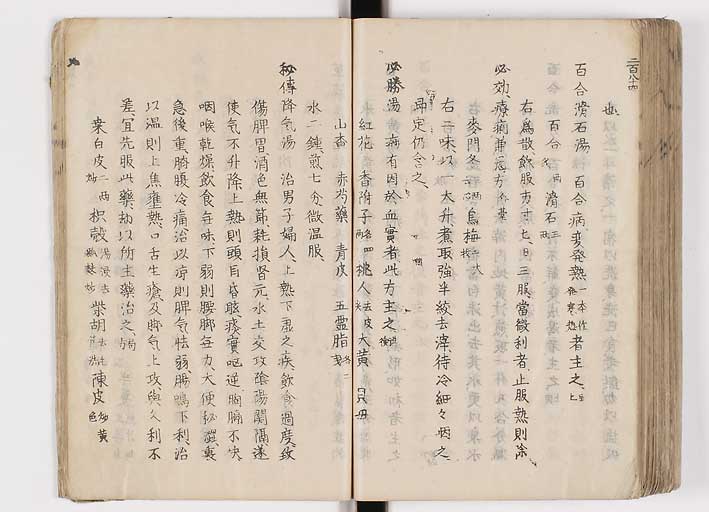 二百八十四
也
百合滑石湯 百合病変発熱一本作発寒熱者主之上
百合一両滑石三両
右為散飲服方寸匕日三服當微利者止服熱則除
必効療痢兼渇方
麥門冬 烏梅 大
右二味以一大升煮取強半絞去滓待冷細々咽之
即定仍含之
必勝湯 病有因於血實者此方主之
紅花 香附子 桃人去皮大黄
山査 赤芍薬 青皮 五靈脂
水二鍾煎七分微温服
秘傳降氣湯 治男子婦人上熱下虚之疾飲食過度致
傷脾胃酒色無節耗損腎元水土交攻陰陽関隔遂
使氣不升降上熱則頭目昏眩痰實嘔逆胸膈不快
咽喉乾燥飲食無味下弱則腰脚無力大便秘澀裏
急後重臍腹冷痛治以凉則脾氣怯弱腸鳴下利治
以温則上焦壅熱口舌生瘡及脚氣上攻與久利不
差宜先服此藥却以所主藥治之
桒白皮二両炒枳殻湯浸去穣麩炒柴胡陳皮炒黄色